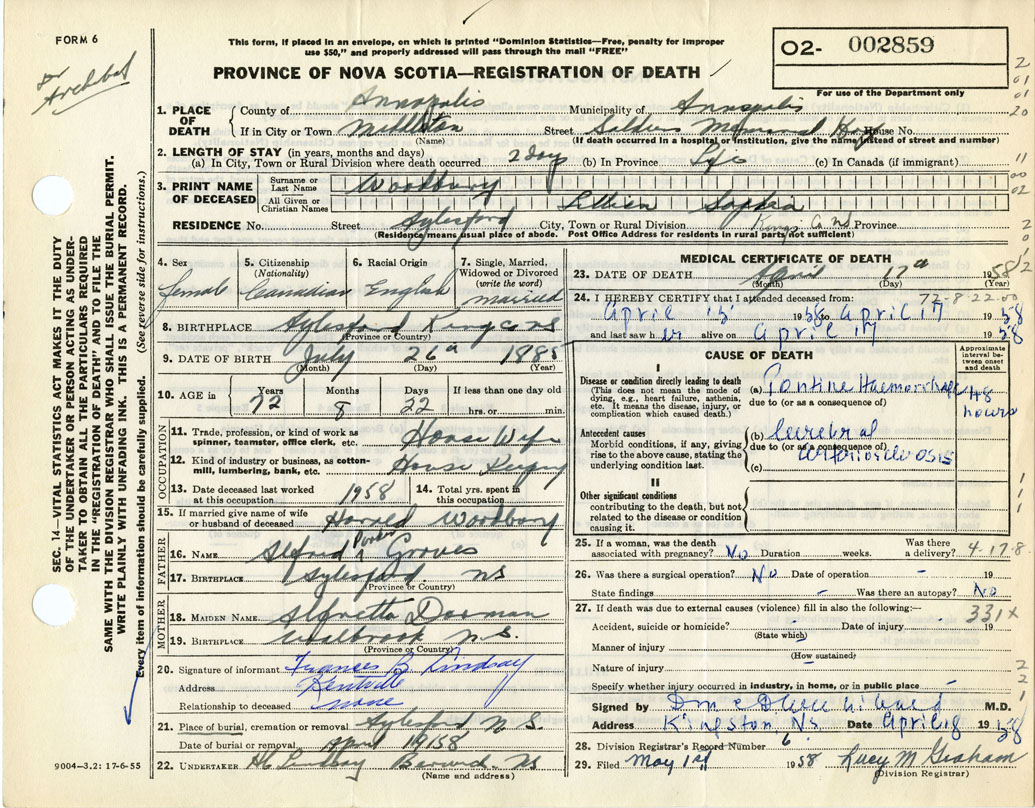 FORM 6
Dr Archibal
This form, if placed in an envelope, on which is printed "Dominion Statistics—Free, penalty for improper
use $50," and properly addressed will pass through the mail "FREE"
PROVINCE OF NOVA SCOTIA—REGISTRATION OF DEATH
O2- 002859
For use of the Department only
SEC. 14—VITAL STATISTICS ACT MAKES IT THE DUTY
OF THE UNDERTAKER OR PERSON ACTING AS UNDER-
TAKER TO OBTAIN ALL THE PARTICULARS REQUIRED
IN THE "REGISTRATION OF DEATH" AND TO FILE THE
SAME WITH THE DIVISION REGISTRAR WHO SHALL ISSUE THE BURIAL PERMIT.
WRITE PLAINLY WITH UNFADING INK. THIS IS A PERMANENT RECORD.
Every item of information should be carefully supplied. (See reverse side for instructions.)
1. PLACE OF DEATH County of Annapolis Municipality of Annapolis
If in City or Town Middleton Street Soldiers Memorial Hosp House No.
(Name) (If death occurred in a hospital or institution, give the name instead of street and number)
2. LENGTH OF STAY (in years, months and days)
(a) In City, Town or Rural Division where death occurred 2 days (b) In Province Life (c) In Canada (if immigrant)
3. PRINT NAME OF DECEASED Surname or Last Name Woodbury
All Given or Christian Names Lillien Sophia
RESIDENCE No. Street Aylesford City, Town or Rural Division Kings Co NS Province
(Residence means usual place of abode. Post Office Address for residents in rural parts not sufficient)
4. Sex 5. Citizenship (Nationality) 6. Racial Origin 7. Single, Married, Widowed or Divorced (write the word)
female Canadian English married
8. BIRTHPLACE Aylesford Kings Co NS
(Province or Country)
9. DATE OF BIRTH July 26th 1885
(Month) (Day) (Year)
10. AGE in Years Months Days If less than one day old
72 8 22 hrs. or min.
OCCUPATION
11. Trade, profession, or kind of work as spinner, teamster, office clerk, etc. House Wife
12. Kind of industry or business, as cotton-mill, lumbering, bank, etc. House Keeping
13. Date deceased last worked at this occupation 1958 14. Total yrs. spent in this occupation
15. If married give name of wife or husband of deceased Harold Woodbury
FATHER
16. NAME Alfred Parker Groves
17. BIRTHPLACE Aylesford NS
(Province or Country)
MOTHER
18. MAIDEN NAME Alfretta Dorman
19. BIRTHPLACE Wallbrook N.S.
(Province or Country)
20. Signature of informant Frances B Lindsay
Address Kentville
Relationship to deceased none
21. Place of burial, cremation or removal Aylesford N.S.
Date of burial or removal April 19 1958
22. UNDERTAKER HC Lindsay Berwick NS
(Name and address)
9004—3.2: 17-6-55
MEDICAL CERTIFICATE OF DEATH
23. DATE OF DEATH April 17th 1958
(Month) (Day) (Year)
72-8-22-00
24. I HEREBY CERTIFY that I attended deceased from:
April 15 1958 to April 17 1958
and last saw her alive on April 17 1958
CAUSE OF DEATH
Approximate interval between onset and death
I
Disease or condition directly leading to death
(This does not mean the mode of dying, e.g., heart failure, asthenia, etc. It means the disease, injury, or complication which caused death.)
(a) Pontine Haemorrhage 48 hours
due to (or as a consequence of)
Antecedent causes
Morbid conditions, if any, giving rise to the above cause, stating the underlying condition last.
(b) Cerebral
due to (or as a consequence of)
arteriosclerosis
(c)
II
Other significant conditions
contributing to the death, but not related to the disease or condition causing it.
25. If a woman, was the death associated with pregnancy? No Duration weeks. Was there a delivery? 4-17-8
26. Was there a surgical operation? No Date of operation - 19
State findings - Was there an autopsy? No
27. If death was due to external causes (violence) fill in also the following:—
331X
Accident, suicide or homicide? - Date of injury - 19
(State which)
Manner of injury
(How sustained)
Nature of injury
Specify whether injury occurred in industry, in home, or in public place -
Signed by M.D.
Address Kingston, NS Date April 18 1958
28. Division Registrar's Record Number 6
29. Filed May 1st 1958 Lucy M Graham
(Division Registrar)